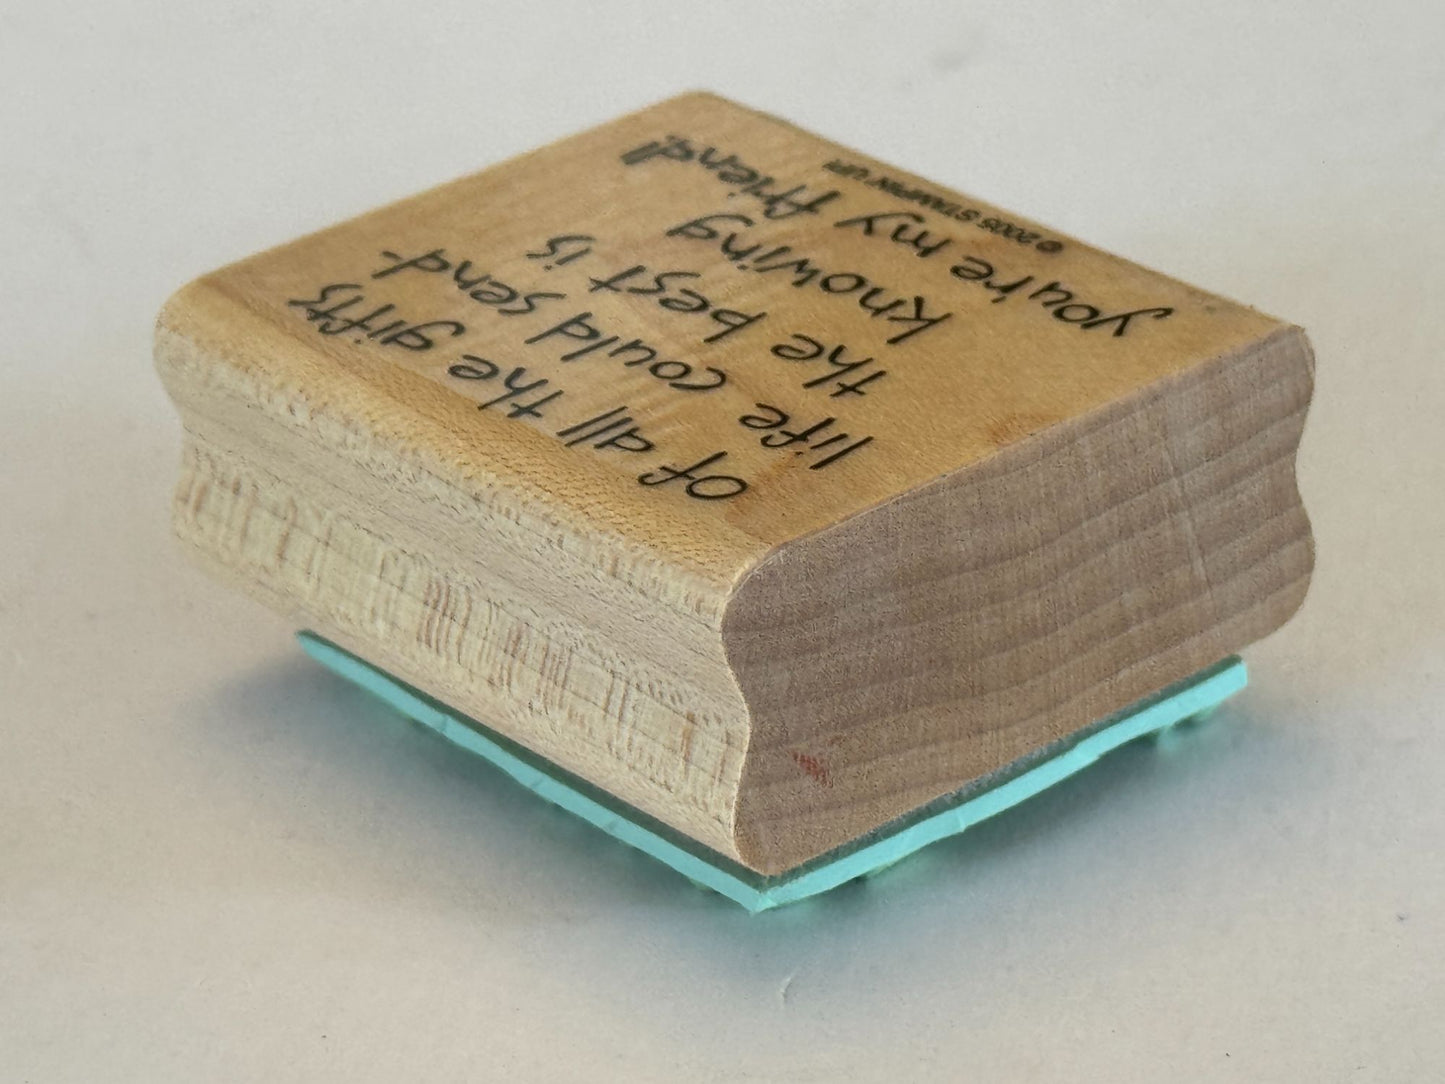 of all the gifts
life could send-
the best is
knowing
you're my friend!
© 2005 STAMPIN' UP!